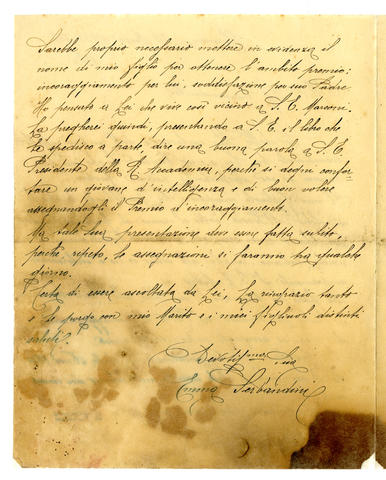 Sarebbe proprio necessario mettere in evidenza il
nome di mio figlio per ottenere l'ambito premio:
incoraggiamento per lui, soddisfazione per suo Padre.
Ho pensato a Lei che vive così vicino a S. E. Marconi.
La pregherei quindi, presentando a S. E. il libro che
Le spedisco a parte, dire una buona parola a S. E.
Presidente della R. Accademia, perchè si degni confor-
tare un giovane d'intelligenza e di buon volere
assegnandogli il Premio d'incoraggiamento.
Ma tale sua presentazione deve essere fatta subito,
perchè, repeto, le assegnazioni si faranno tra qualche
giorno.
Certa di essere ascoltata da Lei, La ringrazio tanto
e Le porgo con mio Marito e i miei figliuoli distinti
saluti.
Devotissma Sua
Emma